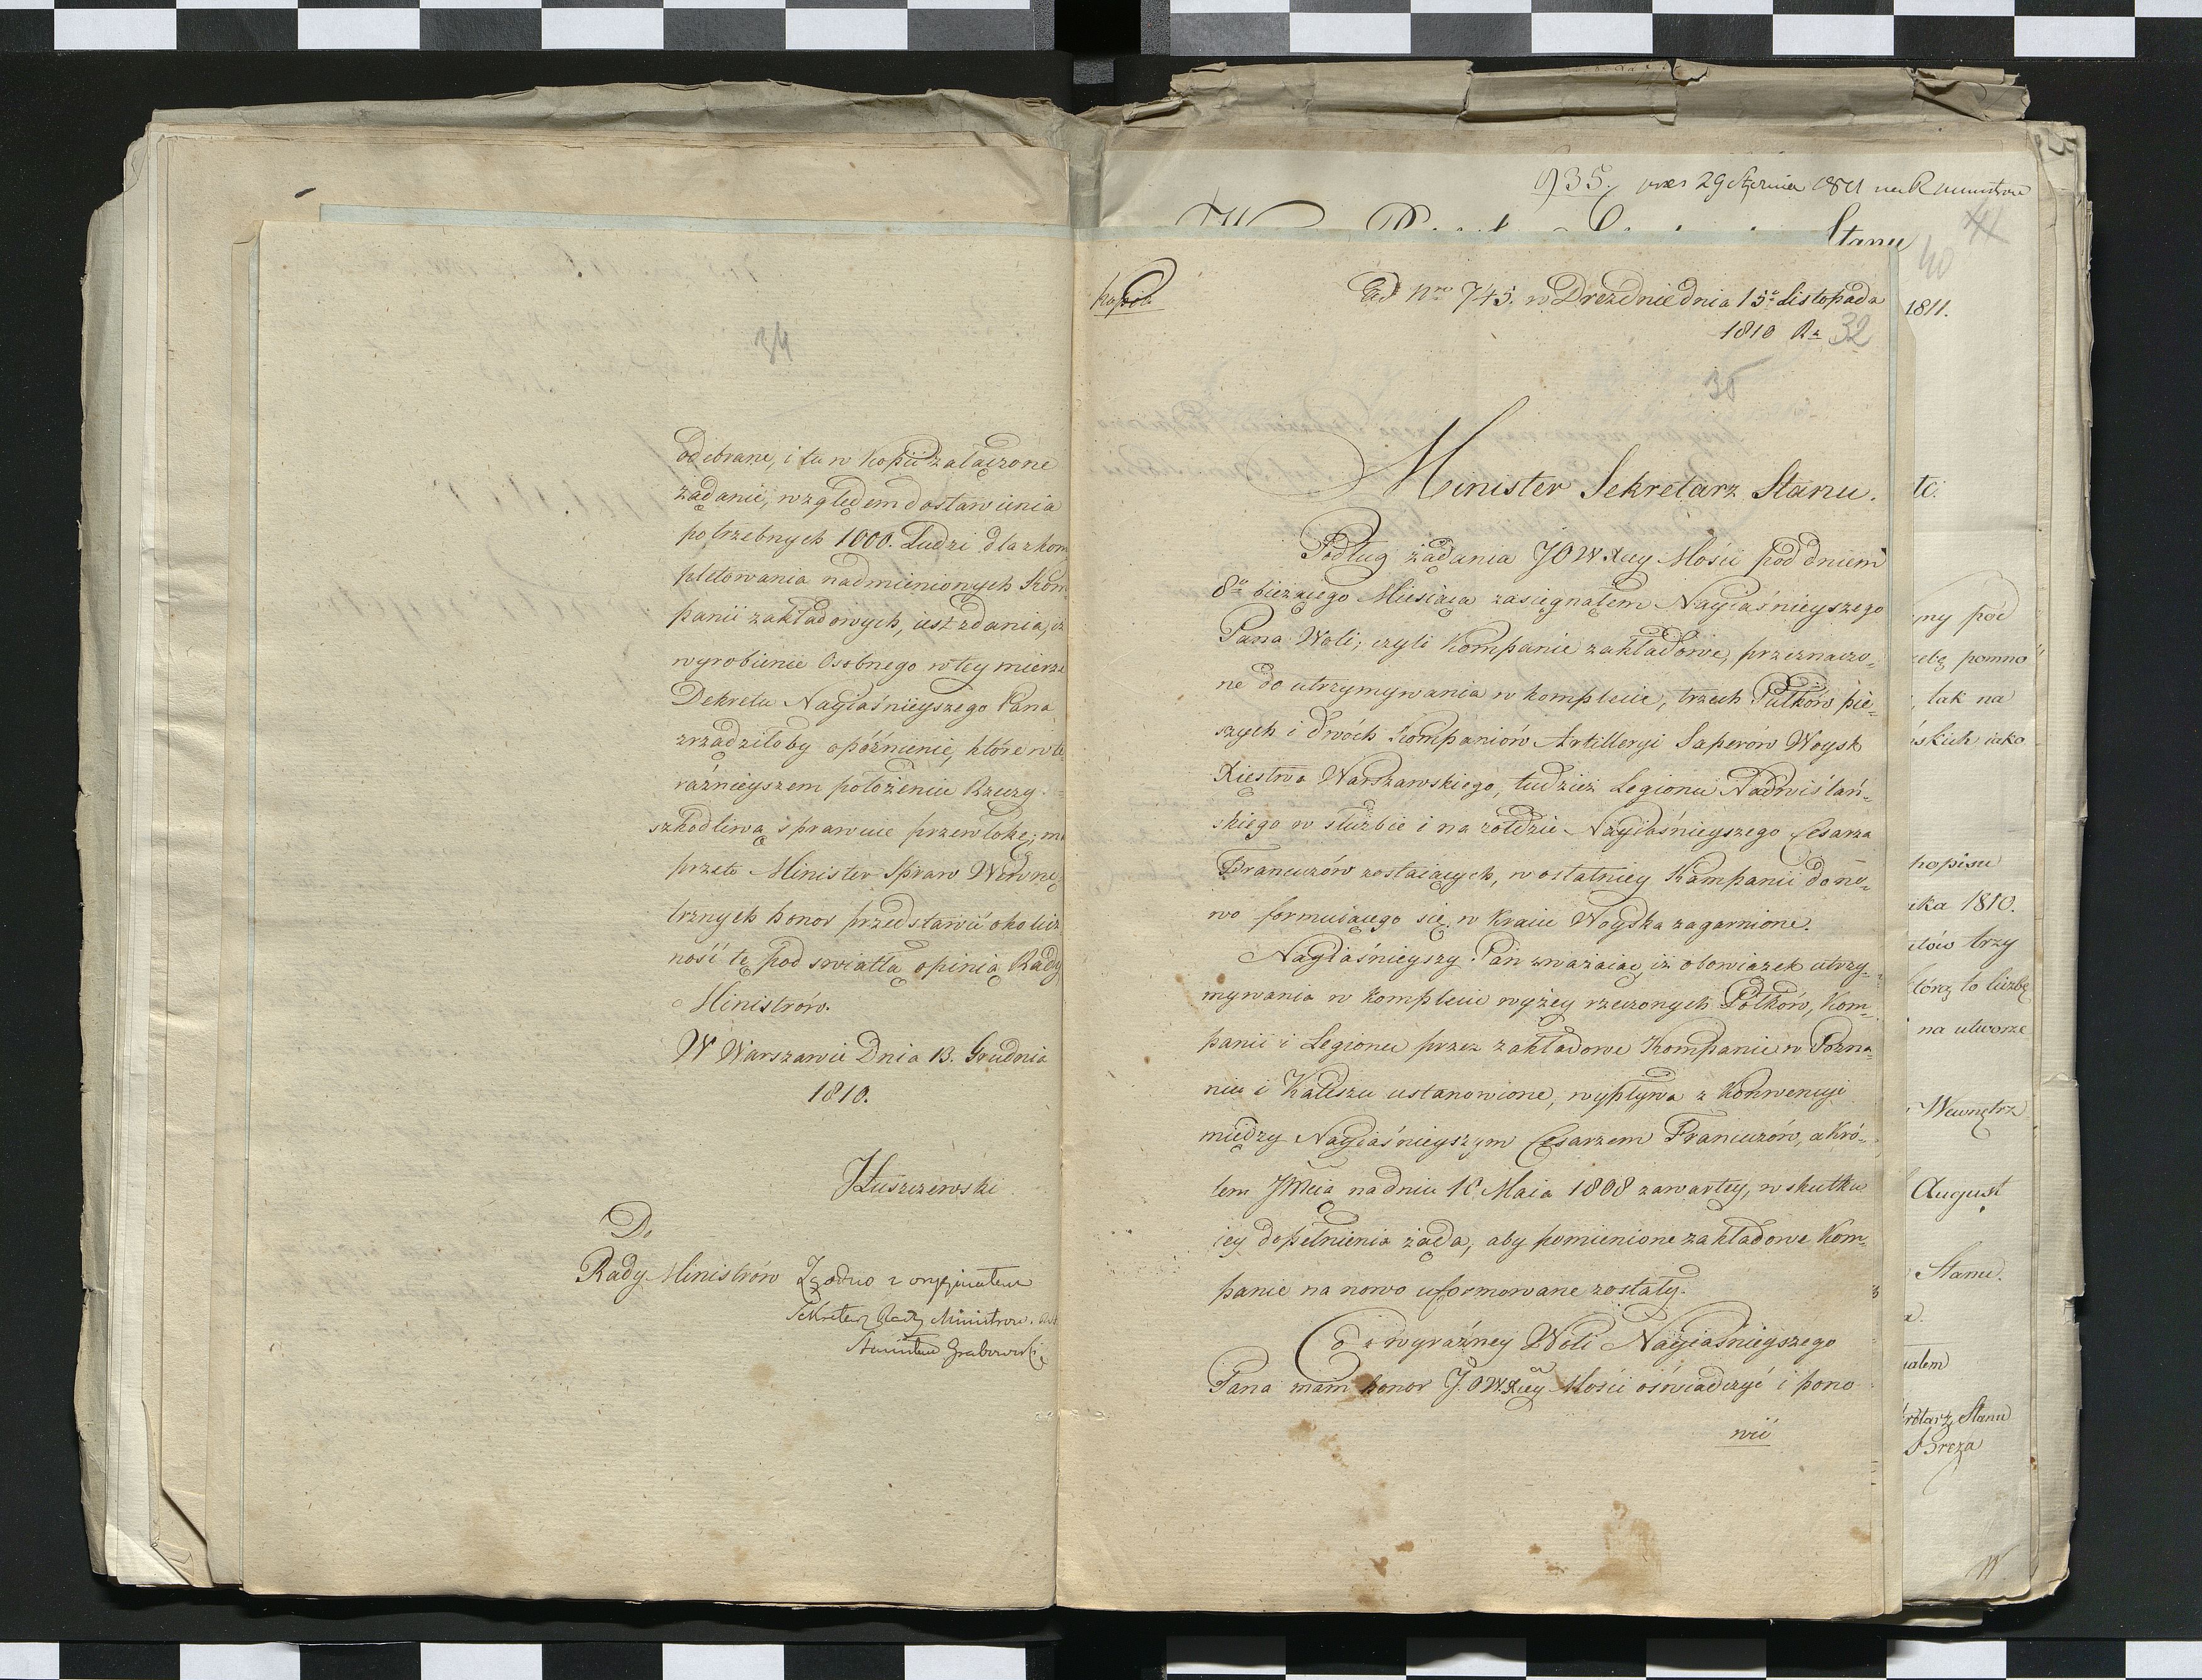 34
odebrane, i tu w Kopii załączone
żądanie, względem dostawienia
potrzebnych 1000. Ludzi dla zkom
pletowania nadmienionych Kom
panii zakładowych, iest zdania, iż
wyrobienie Osobnego w tey mierze
Dekretu Nayiaśnieyszego Pana
zrządziłoby opóźnienie, które w te
raźnieyszem położeniu Rzeczy
szkodliwą sprawuie przewłokę; ma
przeto Minister Spraw Wewnę
trznych honor przedstawić okolicz
ność tę pod światłą opinią Rady
Ministrów.
W Warszawie Dnia 13. Grudnia
1810.
JŁuszczewski
Do
Rady Ministrów
Zgodno z oryginałem
Sekretarz Rady Ministrow
Stanisław Grabowski
935. 29 Stycznia 1811
Stanu
41
40
Kopia
Ad Nro 745. w Dreznie dnia 15o Listopada
1810 Ra 32
35
Minister Sekretarz Stanu.
Podług żądania JOWXcey Mości pod dniem
8o bieżącego Miesiąca zasięgnąłem Nayiaśnieyszego
Pana Woli, czyli Kompanie zakładowe, przeznaczo=
ne do utrzymywania w komplecie, trzech Pułków pie=
szych i dwóch Kompaniów Artilleryi Saperów Woysk
Xięstwa Warszawskiego, tudzież Legionu Nadwiślań=
skiego w służbie i na żołdzie Nayiaśnieyszego Cesarza
Francuzów zostaiących, w ostatniey Kampanii do no=
wo formuiącego się w Kraiu Woyska zagarnione.
Nayiaśnieyszy Pan zważaiąc, iż obowiązek utrzy=
mywania w komplecie wyżey rzeczonych Półków, Kom=
panii i Legionu przez zakładowe Kompanie w Pozna=
niu i Kaliszu ustanowione, wypływa z Konwencyi
między Nayiaśnieyszym Cesarzem Francuzów, a Kró=
lem JMcią na dniu 10 Maia 1808 zawartey, w skutku
iey dopełnienia żąda, aby pomienione zakładowe Kom=
panie na nowo uformowane zostały.
Co z wyraźney Woli Nayiaśnieyszego
Pana mam honor J.O.W.Xcey Mości oświadczyć i pono
wić
1811.
tc.
ny pod
zebę pomno
, tak na
skich iako
popisu
ka 1810.
tów trzy
tórą to liczbę
na utworze
Wewnętrz
August
Stanu.
ałem
retarz Stanu
Breza